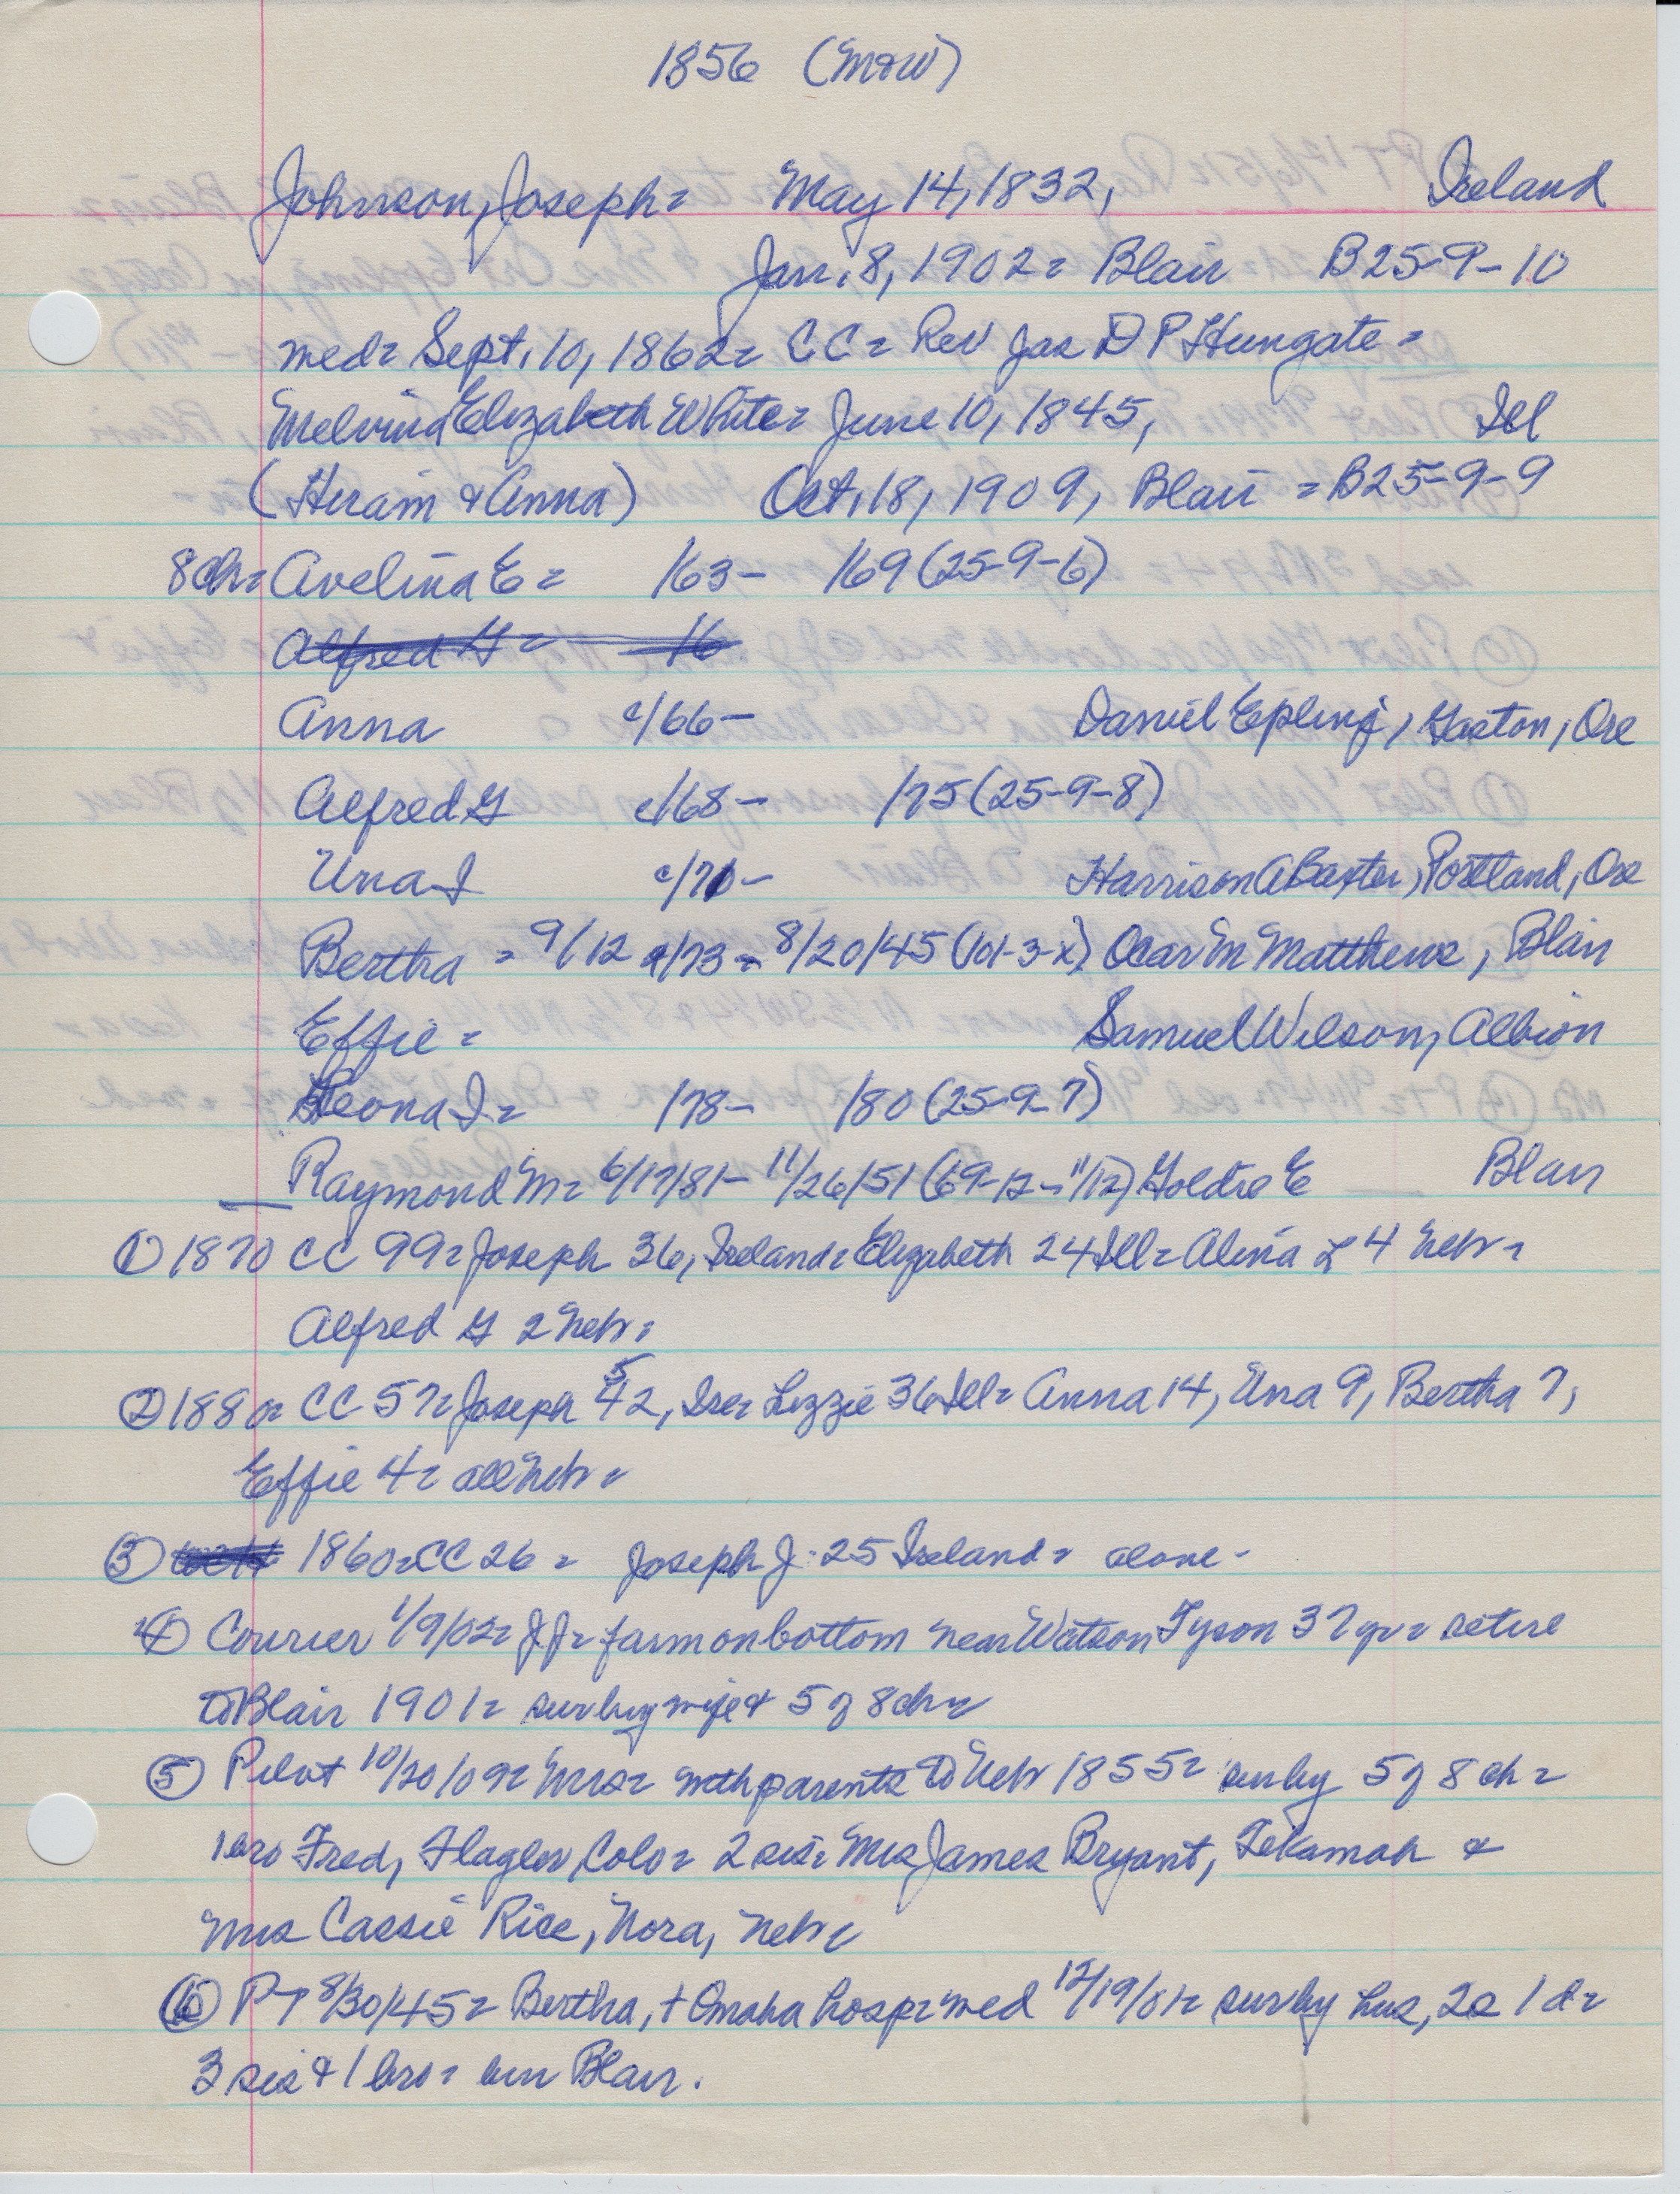 1856 (M&W)
Johnson, Joseph = May 14, 1832, Ireland
Jan. 8, 1902 = Blair B25-9-10
med = Sept. 10, 1862 = CC = Rev Jas D P Hungate =
Melvina Elizabeth White = June 10, 1845, Ill
(Hiram & Anna) Oct. 18, 1909, Blair = B25-9-9
8 ch = Avelina E = /63 - /69 (25-9-6)
Alfred G = /6
Anna c/66 - Daniel Epling, Gaston, Ore
Alfred G c/68 - /75 (25-9-8)
Una I c/71 - Harrison A Baxter, Portland, Ore
Bertha = 9/12 /73 - 8/20/45 (101-3-x) Oscar M Matthews, Blair
Effie = Samuel Wilson, Albion
Leona I = /78 - /80 (25-9-7)
Raymond M = 6/17/81 - 11/26/51 (69-12-11/12) Goldie E Blair
① 1870 CC 99 = Joseph 36, Ireland = Elizabeth 24 Ill = Alina 4 Nebr =
Alfred G 2 Nebr =
② 1880 = CC 57 = Joseph 52, Ire = Lizzie 36 Ill = Anna 14, Una 9, Bertha 7,
Effie 4 = all Nebr =
③ 1860 = CC 26 = Joseph J. 25 Ireland = alone -
④ Courier 1/9/02 = JJ = farm on bottom near Watson Tyson 37 yr = retire
to Blair 1901 = sur by wife & 5 of 8 ch =
⑤ Pilot 10/20/09 = Mrs = with parents to Nebr 1855 = sur by 5 of 8 ch =
1 bro Fred, Flagler, Colo = 2 sis = Mrs James Bryant, Tekamah &
Mrs Cassie Rice, Nora, Nebr =
⑥ PT 8/30/45 = Bertha, + Omaha hosp = med 12/19/01 = sur by hus, 2s 1 d =
3 sis & 1 bro = bur Blair.